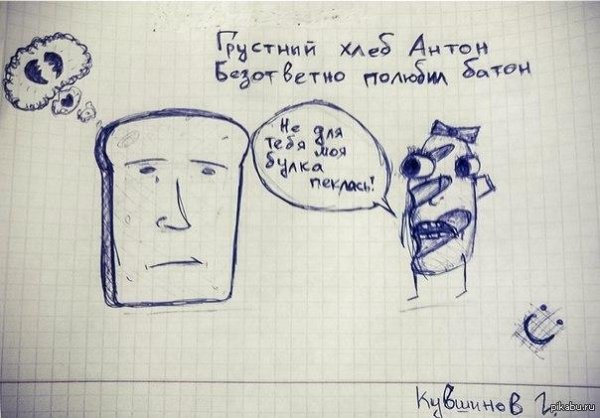 Грустний хлеб Антон
Безответно полюбил батон
Не для
тебя моя
булка
пеклась!
Кувшинов Г.
pikabu.ru